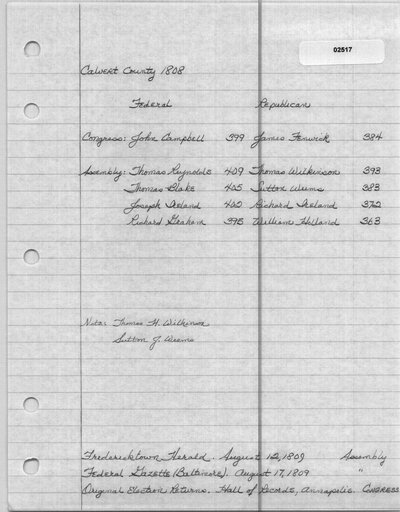 02517
Calvert County 1808
Federal Republican
Congress: John Campbell 399 James Fenwick 384
Assembly: Thomas Reynolds 409 Thomas Wilkinson 393
Thomas Blake 405 Sutton Weems 383
Joseph Ireland 402 Richard Ireland 372
Richard Graham 398 William Holland 363
Note: Thomas H. Wilkinson
Sutton J. Weems
Fredericktown Herald. August 12, 1809 Assembly
Federal Gazette (Baltimore). August 17, 1809 "
Original Election Returns. Hall of Records, Annapolis. Congress